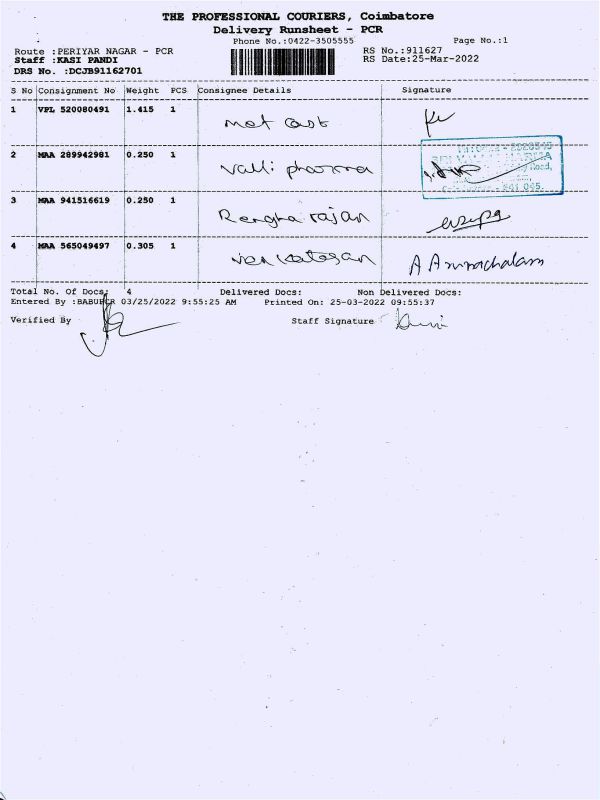 THE PROFESSIONAL COURIERS, Coimbatore
Delivery Runsheet - PCR
Phone No.:0422-3505555 Page No.:1
Route :PERIYAR NAGAR - PCR RS No.:911627
Staff :KASI PANDI RS Date:25-Mar-2022
DRS No. :DCJB91162701
S No Consignment No Weight PCS Consignee Details Signature
1 VPL 520080491 1.415 1 met cast
2 MAA 289942981 0.250 1 Valli pharma
3 MAA 941516619 0.250 1 Rengha rajan
4 MAA 565049497 0.305 1 Venkatesan A Arunachalam
Total No. Of Docs: 4 Delivered Docs: Non Delivered Docs:
Entered By :BABUPCR 03/25/2022 9:55:25 AM Printed On: 25-03-2022 09:55:37
Verified By Staff Signature :